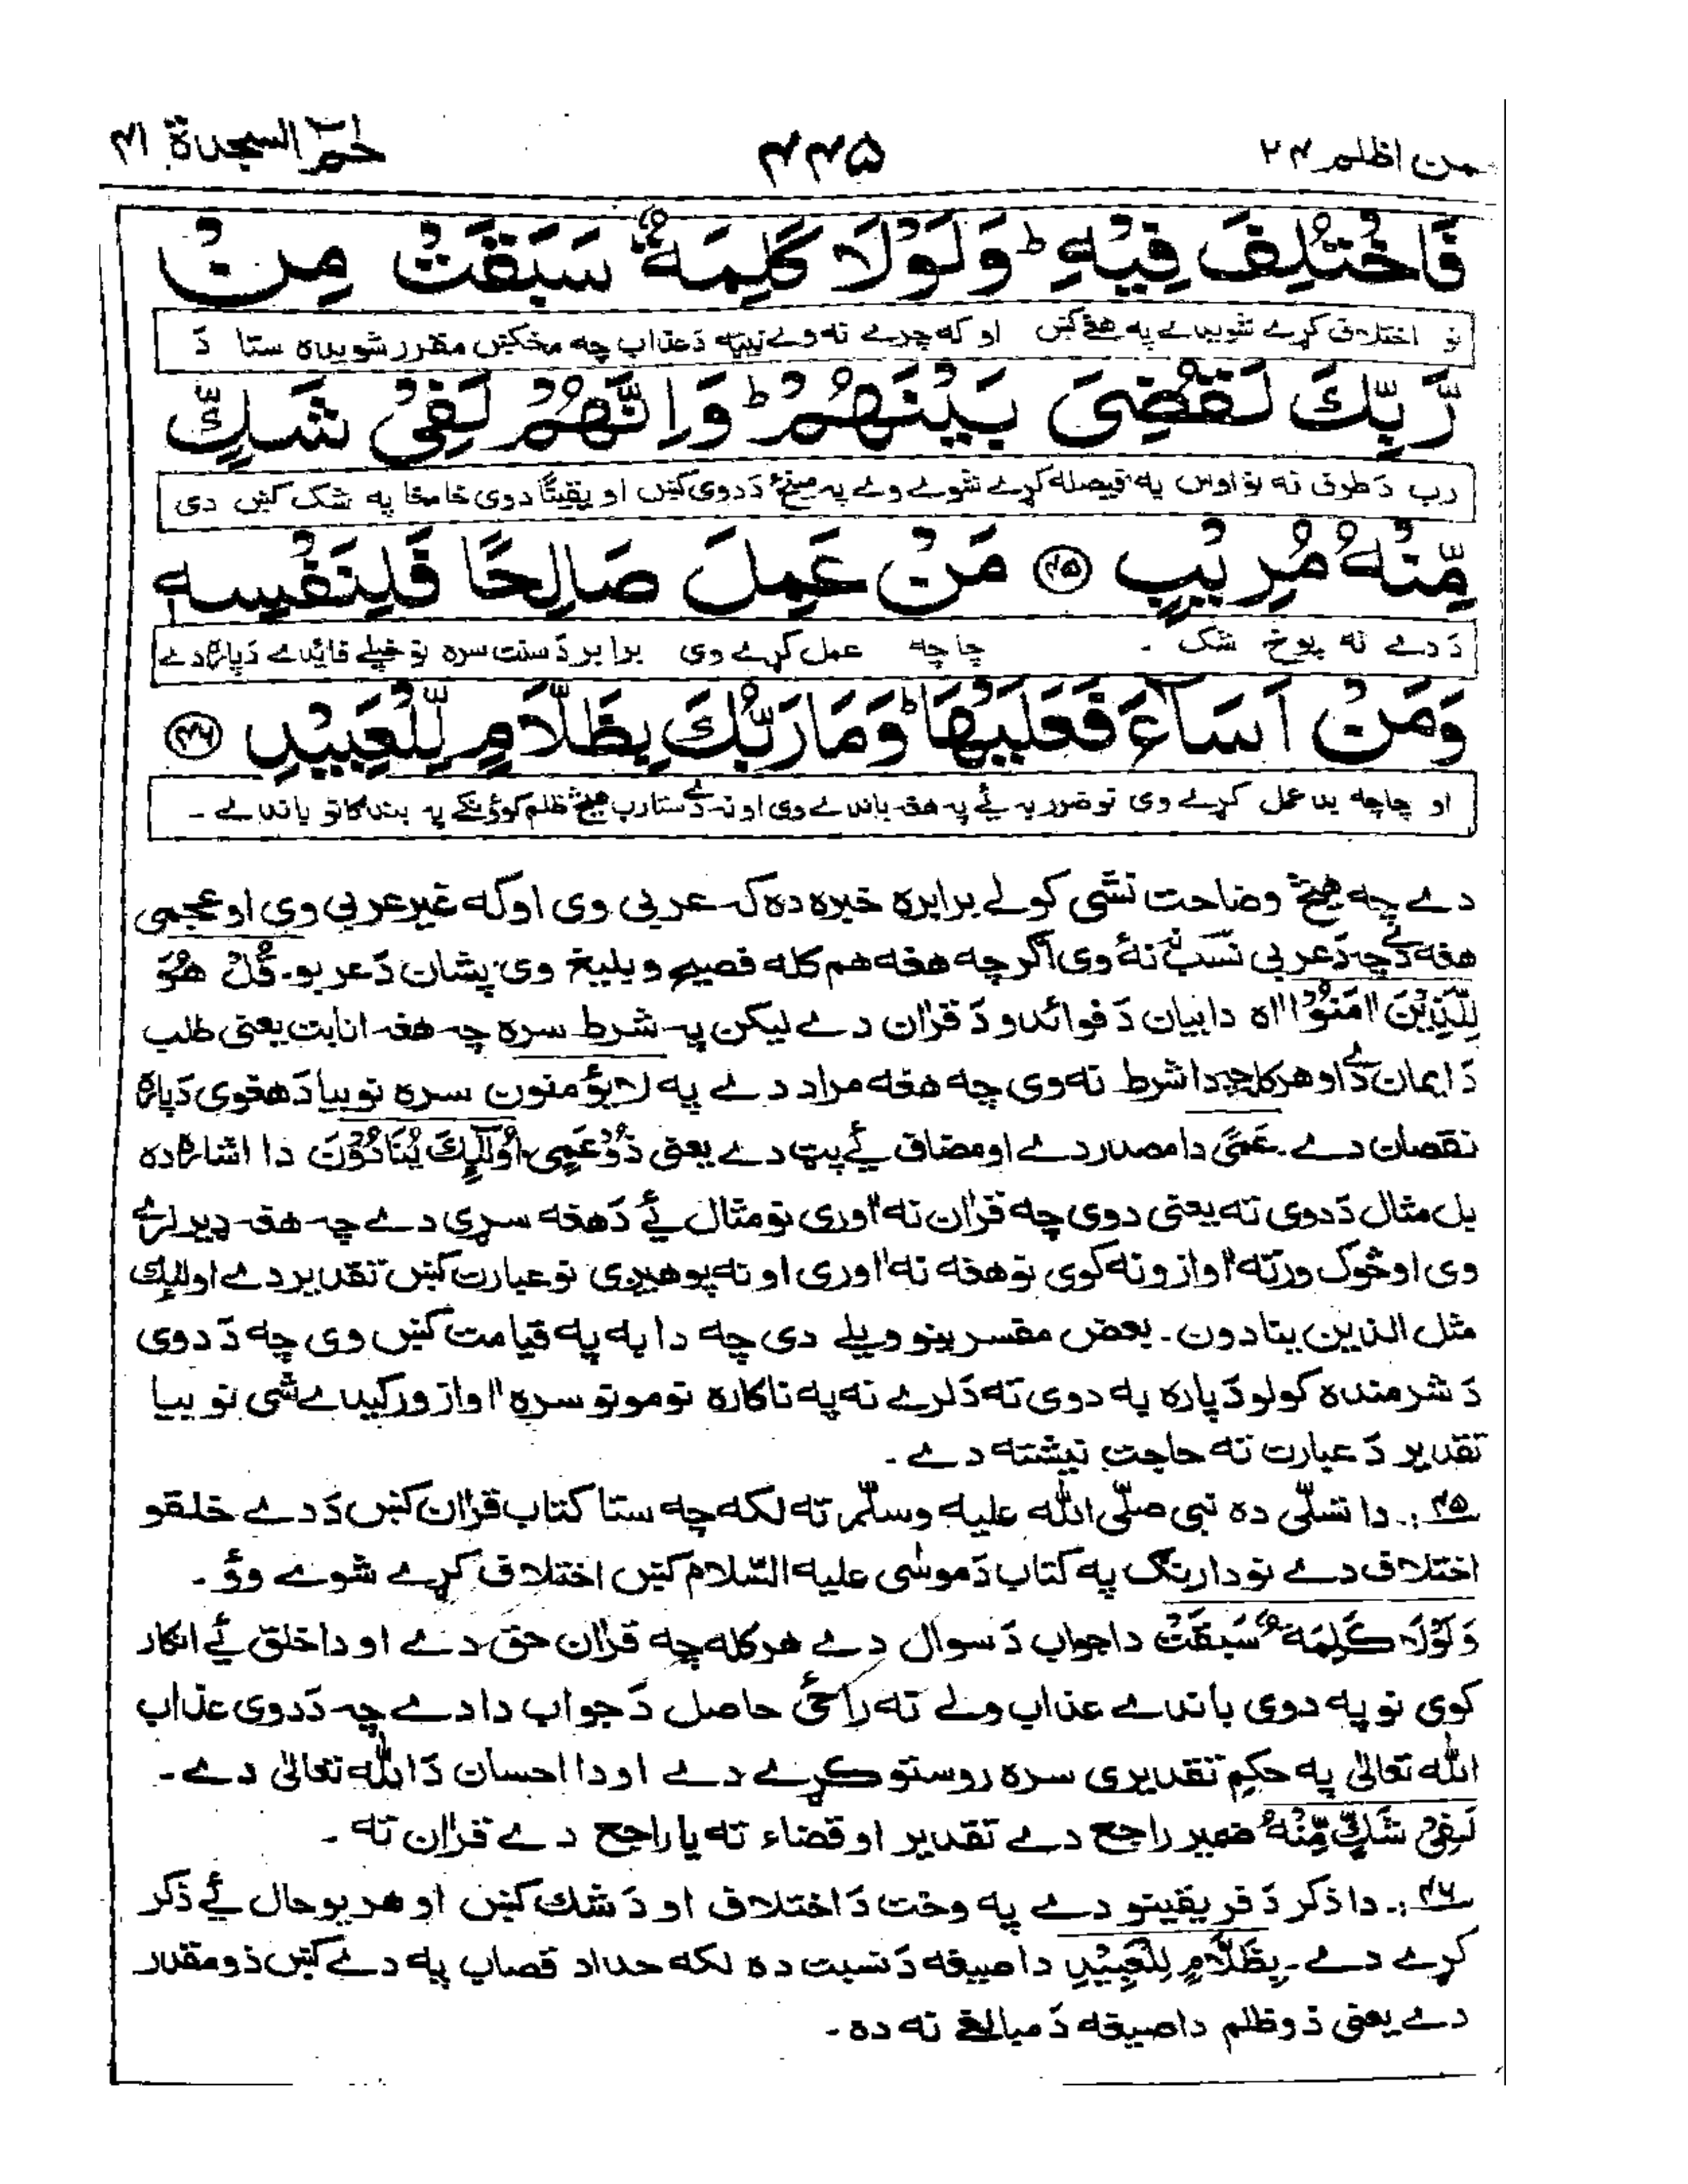 فمن اظلم ۲۴
۴۴۵
حٰمٓ السجدة ۴۱
فَاخْتُلِفَ فِيْهِ ؕ وَلَوْلَا كَلِمَةٌ سَبَقَتْ مِنْ
نو اختلاف کړے شویدے په هغے کښ او که چرے نه وے نیټه دَ عذاب چه مخکښ مقرر شویده ستا دَ
رَّبِّكَ لَقُضِيَ بَيْنَهُمْ ؕ وَاِنَّهُمْ لَفِيْ شَكٍّ
رب دَ طرف نه نو اوس به فیصله کړے شوے وے په مینځ دَ دوی کښ او یقیناً دوی خامخا په شک کښ دی
مِّنْهُ مُرِيْبٍ ۝۴۵ مَنْ عَمِلَ صَالِحًا فَلِنَفْسِهٖ
دَ دے نه پوخ شک ۔ چا چه عمل کړے وی برابر دَ سنت سره نو خپلے فائدے دَپاره دے
وَمَنْ اَسَآءَ فَعَلَيْهَا ؕ وَمَا رَبُّكَ بِظَلَّامٍ لِّلْعَبِيْدِ ۝۴۶
او چا چه بد عمل کړے وی نو ضرر به ئے په هغه باندے وی او نه دے ستا رب هیڅ ظلم کوؤنکے په بندگانو باندے ۔
دے چه هیڅ وضاحت نشی کولے برابره خبره ده که عربی وی او که غیر عربی وی او عجمی
هغه دے چه دَ عربی نسب نه وی اگرچه هغه هم کله فصیح و بلیغ وی پشان دَ عربو۔ قُلْ هُوَ
لِلَّذِيْنَ اٰمَنُوْا اه دا بیان دَ فوائدو دَ قرآن دے لیکن په شرط سره چه هغه انابت یعنی طلب
دَ ایمان دے او هرکله چه دا شرط نه وی چه هغه مراد دے په لا یؤمنون سره نو بیا دَ هغوی دَپاره
نقصان دے۔ عَمًی دا مصدر دے او مضاف ئے پټ دے یعنی ذُوْ عَمًی۔ اُولٰٓئِكَ يُنَادَوْنَ دا اشاره ده
بل مثال دَ دوی ته یعنی دوی چه قرآن نه اوری نو مثال ئے دَ هغه سړی دے چه هغه ډیر لرے
وی او څوک ورته آوازونه کوی نو هغه نه اوری او نه پوهیږی نو عبارت کښ تقدیر دے اولئِك
مثل الذین ینادون۔ بعض مفسرینو ویلے دی چه دا به په قیامت کښ وی چه دَ دوی
دَ شرمنده کولو دَپاره به دوی ته دَ لرے نه په ناکاره نومونو سره آواز ورکیدے شی نو بیا
تقدیر دَ عبارت ته حاجت نیشته دے ۔
۴۵:۔ دا تسلّی ده نبی صلّی اللّٰه علیه وسلّم ته لکه چه ستا کتاب قرآن کښ دَ دے خلقو
اختلاف دے نو دارنگ په کتاب دَ موسٰی علیه السّلام کښ اختلاف کړے شوے وؤ ۔
وَلَوْلَا كَلِمَةٌ سَبَقَتْ دا جواب دَ سوال دے هرکله چه قرآن حق دے او دا خلق ئے انکار
کوی نو په دوی باندے عذاب ولے نه راځی حاصل دَ جواب دا دے چه دَ دوی عذاب
اللّٰه تعالیٰ په حکم تقدیری سره روستو کړے دے او دا احسان دَ اللّٰه تعالیٰ دے ۔
لَفِيْ شَكٍّ مِّنْهُ ضمیر راجع دے تقدیر او قضاء ته یا راجع دے قرآن ته ۔
۴۶:۔ دا ذکر دَ فریقینو دے په وخت دَ اختلاف او دَ شك کښ او هر یو حال ئے ذکر
کړے دے ۔ بِظَلَّامٍ لِّلْعَبِيْدِ دا صیغه دَ نسبت ده لکه حداد قصاب په دے کښ ذو مقدر
دے یعنی ذو ظلم دا صیغه دَ مبالغے نه ده ۔